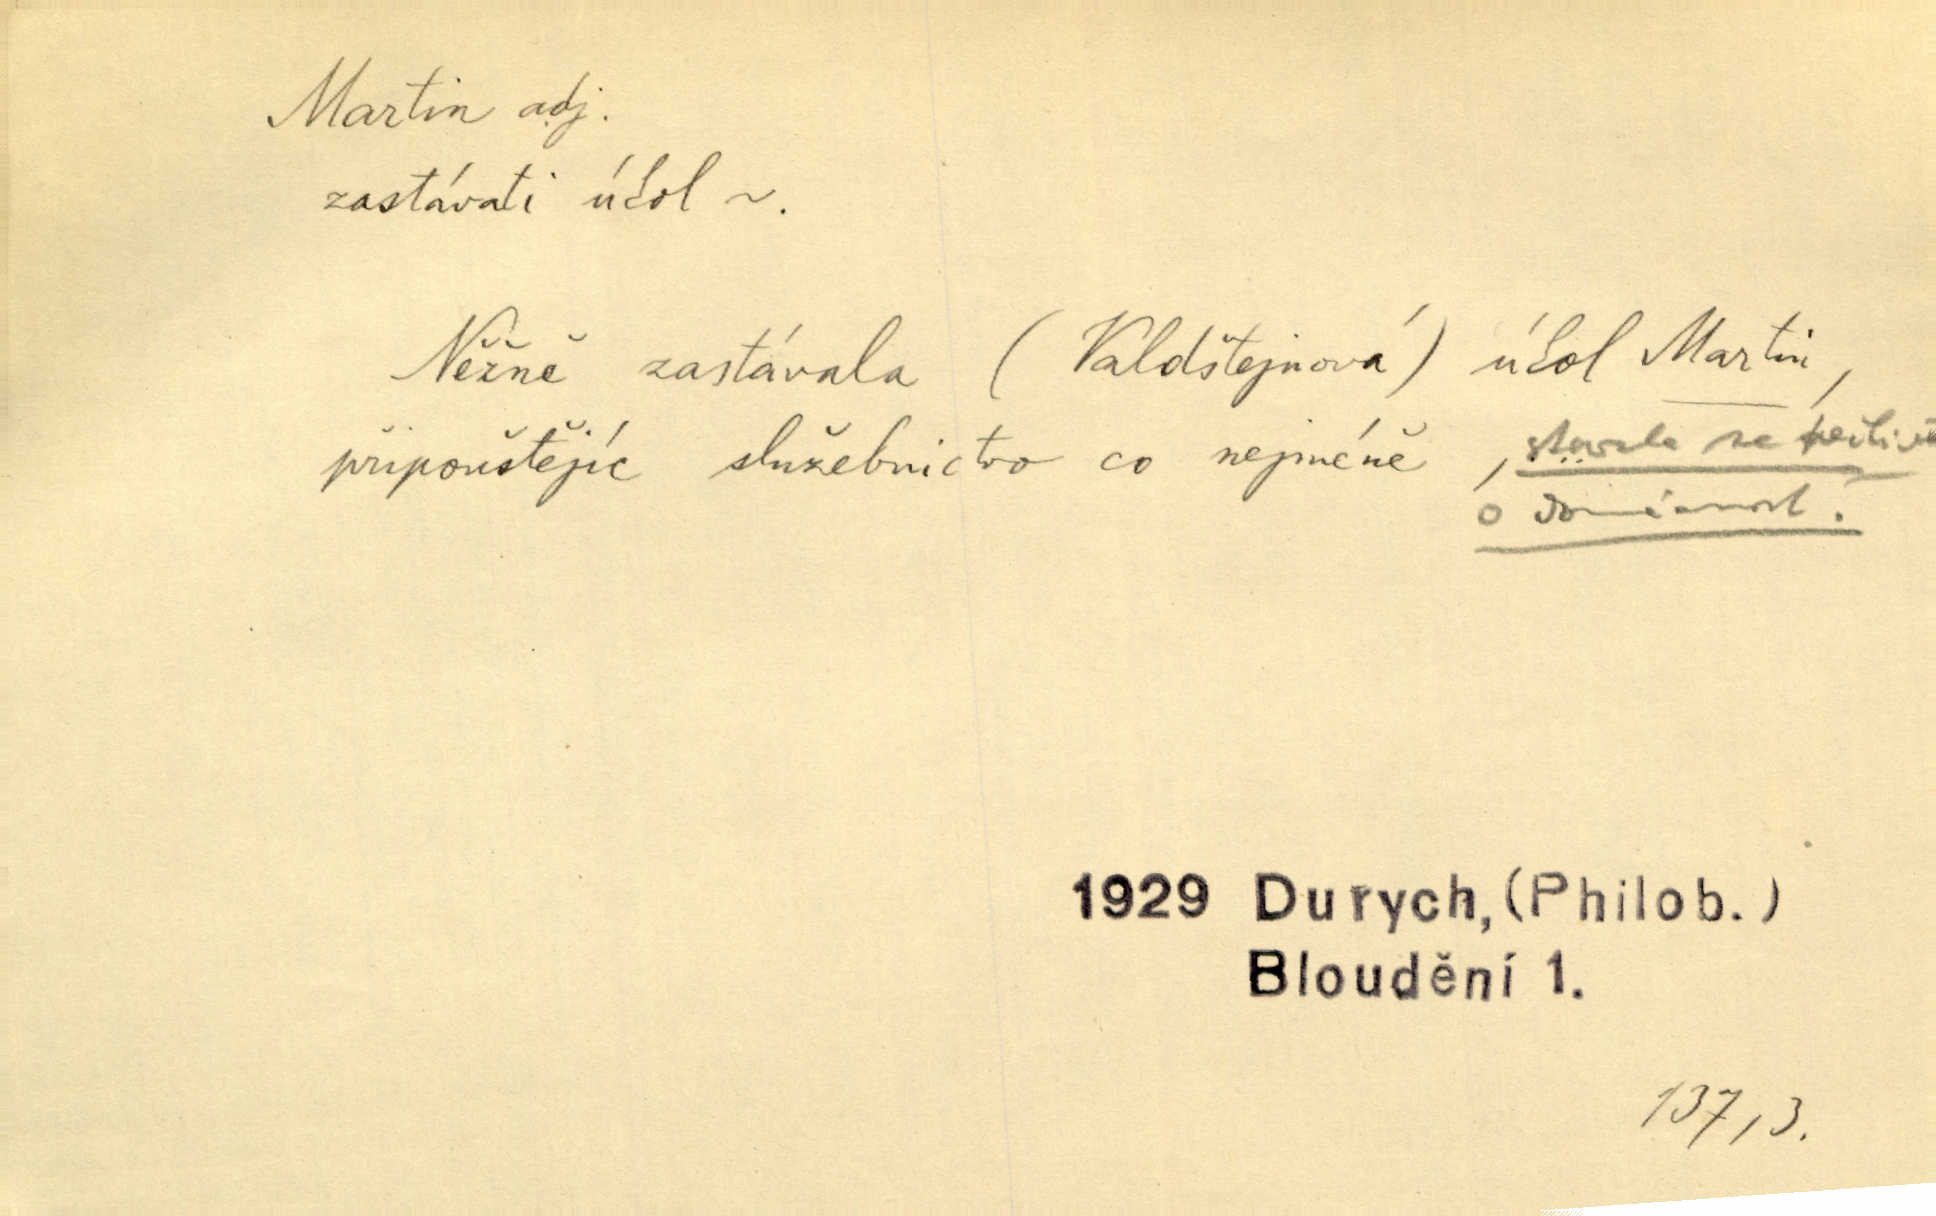 Martin adj.
zastávati účol ~.
Něžně zastávala (Valdštejnová) účol Martin,
připouštějíc služebnictvo co nejméně, starala se pečlivě
o domácnost.
1929 Durych, (Philob.)
Bloudění 1.
137, 3.